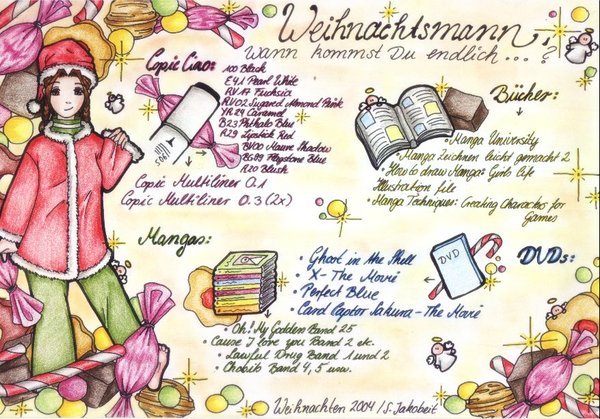 Weihnachtsmann,
Wann kommst Du endlich...?
Copic Ciao:
100 Black
E41 Pearl White
RV17 Fuchsia
RV02 Sugared Almond Pink
YR24 Caramel
B23 Phthalo Blue
R29 Lipstick Red
BV00 Mauve Shadow
BG99 Flagstone Blue
R20 Blush
Copic Multiliner 0.1
Copic Multiliner 0.3 (2x)
Bücher:
• Manga University
• Manga Zeichnen leicht gemacht 2
• How to draw Manga: Girls Life Illustration file
• Manga Techniques: Creating Characters for Games
Mangas:
• Oh! My Goddess Band 25
• Cause I love you Band 2 etc.
• Lawful Drug Band 1 und 2
• Chobits Band 4, 5 usw.
DVD
DVDs:
• Ghost in the Shell
• X - The Movie
• Perfect Blue
• Card Captor Sakura - The Movie
Weihnachten 2004 / S. Jakobeit